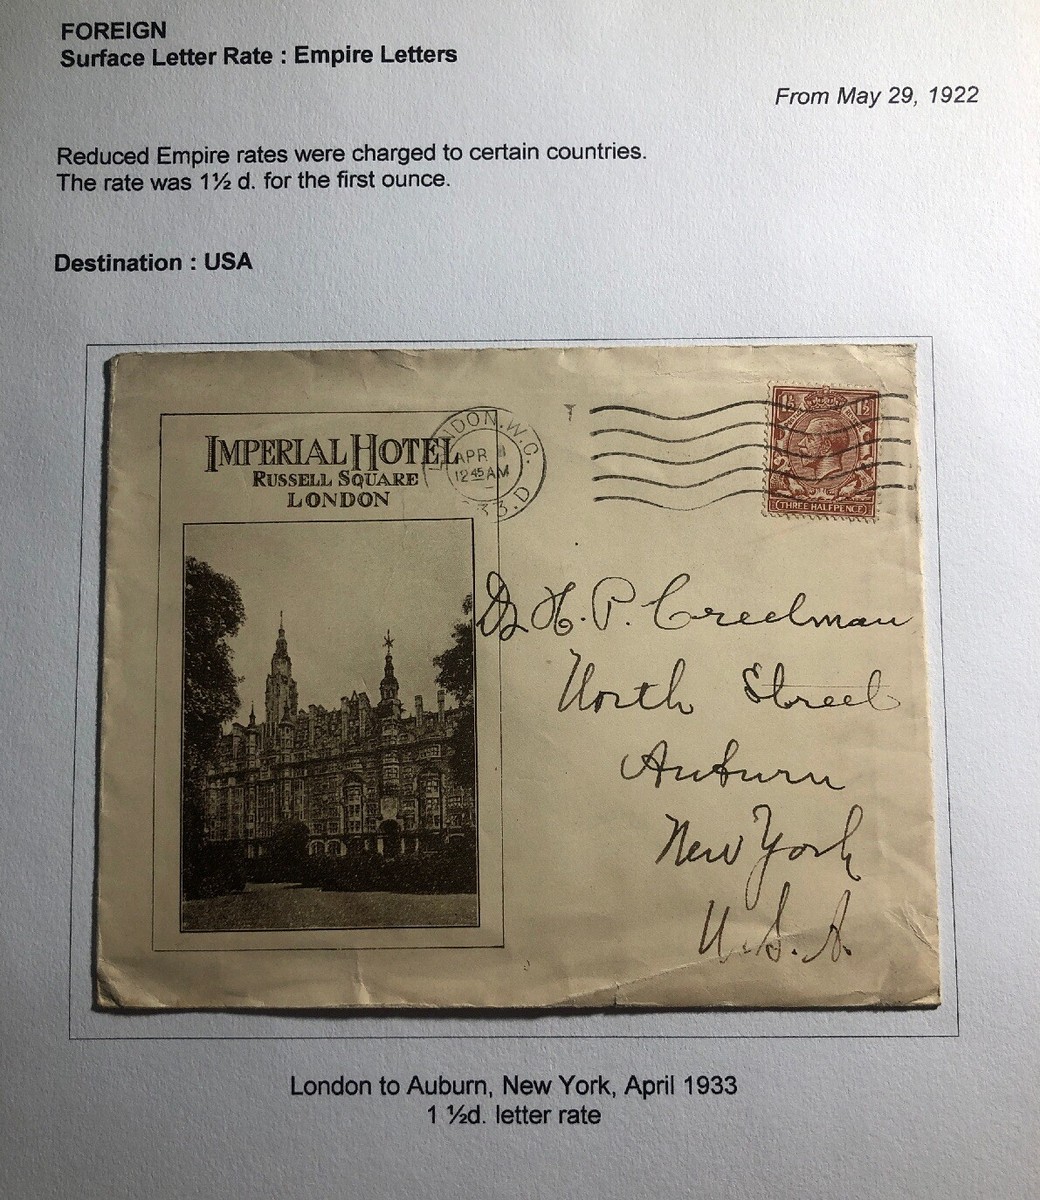 FOREIGN
Surface Letter Rate : Empire Letters
From May 29, 1922
Reduced Empire rates were charged to certain countries.
The rate was 1½ d. for the first ounce.
Destination : USA
IMPERIAL HOTEL
RUSSELL SQUARE
LONDON
LONDON.W.C.
APR
12 45 AM
33.D
1½ 1½
THREE HALFPENCE
H. P. Creelman
North Street
Auburn
New York
U.S.A.
London to Auburn, New York, April 1933
1 ½d. letter rate